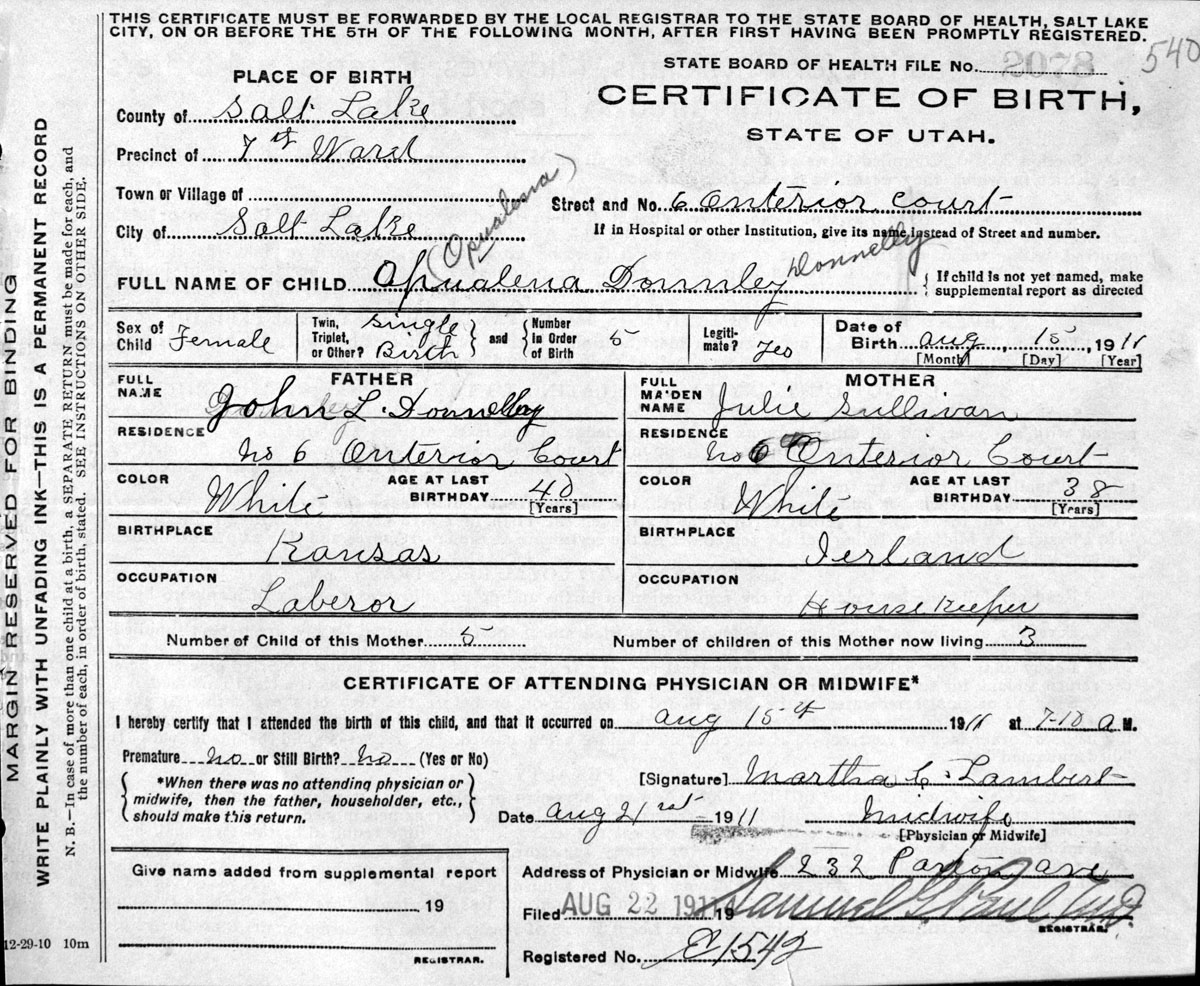 THIS CERTIFICATE MUST BE FORWARDED BY THE LOCAL REGISTRAR TO THE STATE BOARD OF HEALTH, SALT LAKE
CITY, ON OR BEFORE THE 5TH OF THE FOLLOWING MONTH, AFTER FIRST HAVING BEEN PROMPTLY REGISTERED.
540
STATE BOARD OF HEALTH FILE No. 2078
CERTIFICATE OF BIRTH,
STATE OF UTAH.
PLACE OF BIRTH
County of Salt Lake
Precinct of 7th Ward
Town or Village of
City of Salt Lake
Street and No. 6 Onterior Court
If in Hospital or other Institution, give its name instead of Street and number.
(Opualena)
Donnelly
FULL NAME OF CHILD Opualena Donnley
If child is not yet named, make
supplemental report as directed
Sex of Child Female
Twin, Triplet, or Other? Single Birth
and Number in Order of Birth 5
Legitimate? Yes
Date of Birth Aug 15, 1911
[Month] [Day] [Year]
FATHER
FULL NAME John L. Donnelly
RESIDENCE No 6 Onterior Court
COLOR White AGE AT LAST BIRTHDAY 40 [Years]
BIRTHPLACE Kansas
OCCUPATION Laberor
MOTHER
FULL MAIDEN NAME Julie Sullivan
RESIDENCE No 6 Onterior Court
COLOR White AGE AT LAST BIRTHDAY 38 [Years]
BIRTHPLACE Ierland
OCCUPATION House Keeper
Number of Child of this Mother 5 Number of children of this Mother now living 3
CERTIFICATE OF ATTENDING PHYSICIAN OR MIDWIFE*
I hereby certify that I attended the birth of this child, and that it occurred on Aug 15th 1911 at 7-10 A M.
Premature No or Still Birth? No (Yes or No)
*When there was no attending physician or
midwife, then the father, householder, etc.,
should make this return.
[Signature] Martha C. Lambert
Date Aug 21st 1911 Midwife
[Physician or Midwife]
Give name added from supplemental report
19
REGISTRAR.
Address of Physician or Midwife 232 Ave
Filed AUG 22 1911 19 Samuel G. Paul M.D.
REGISTRAR.
Registered No. E1542
12-29-10 10m
MARGIN RESERVED FOR BINDING
WRITE PLAINLY WITH UNFADING INK—THIS IS A PERMANENT RECORD
N. B.—In case of more than one child at a birth, a SEPARATE RETURN must be made for each, and
the number of each, in order of birth, stated. SEE INSTRUCTIONS ON OTHER SIDE.